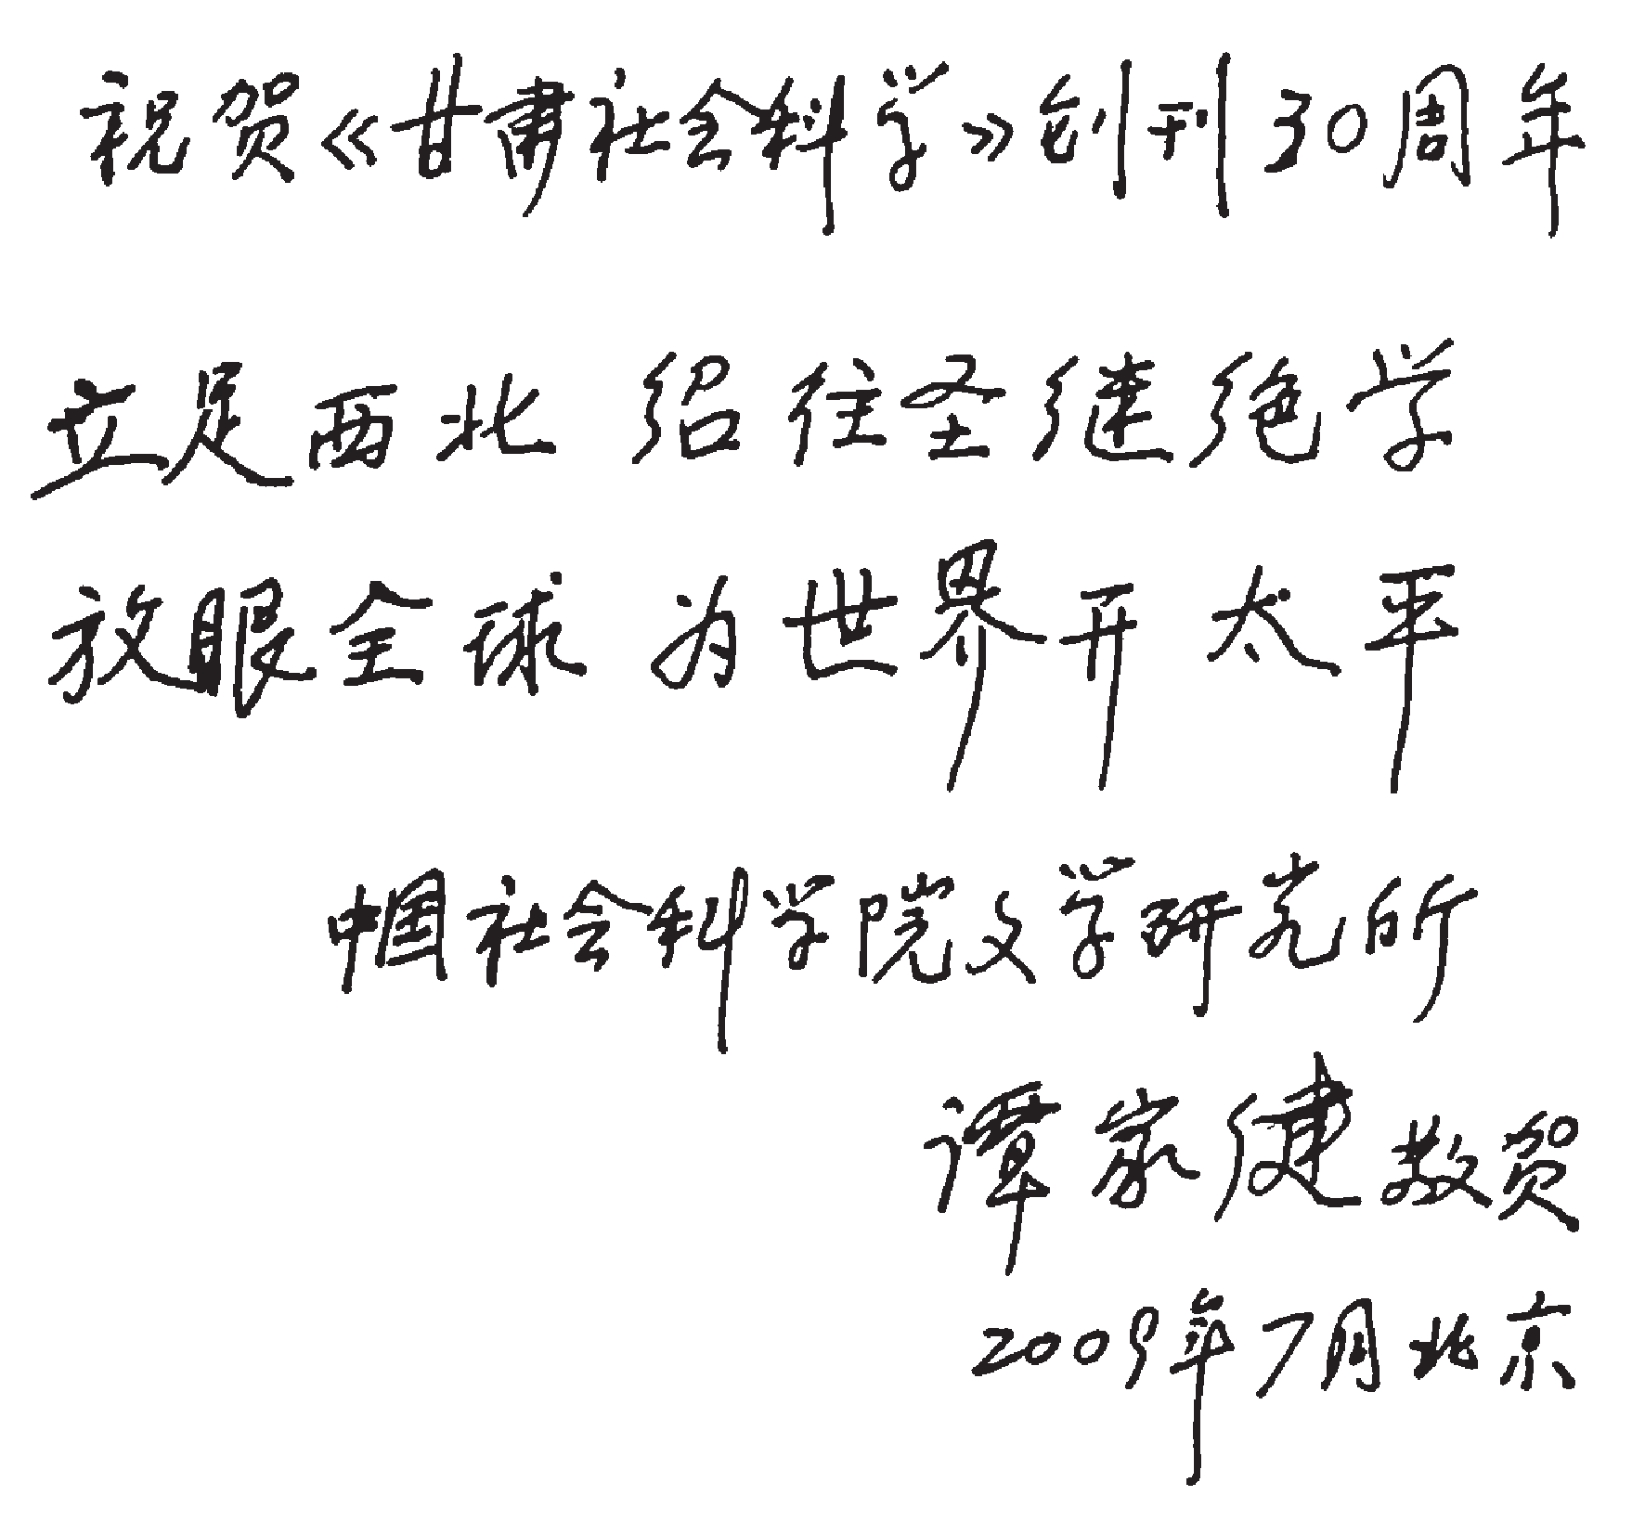 祝贺《甘肃社会科学》创刊30周年
立足西北 绍往圣继绝学
放眼全球 为世界开太平
中国社会科学院文学研究所
谭家健敬贺
2009年7月北京